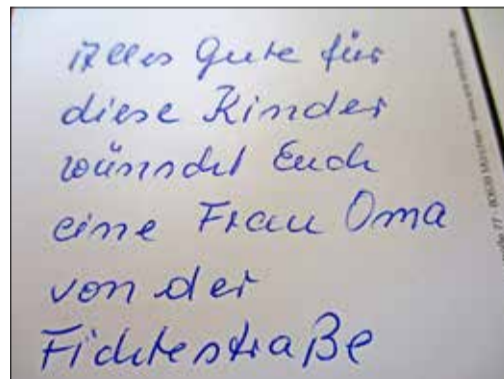 Alles Gute für
diese Kinder
wünscht Euch
eine Frau Oma
von der
Fichtestraße